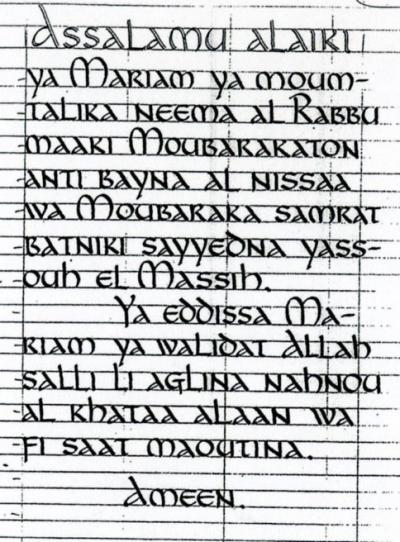 Assalamu alaiki
ya Mariam ya moum-
talika neema al Rabbu
maaki Moubarakaton
anti bayna al nissaa
wa Moubaraka samrat
batniki sayyedna yass-
ouh el Massih.
Ya eddissa Ma-
riam ya walidat Allah
salli li aglina nahnou
al khataa alaan wa
fi saat maoutina.
Ameen.